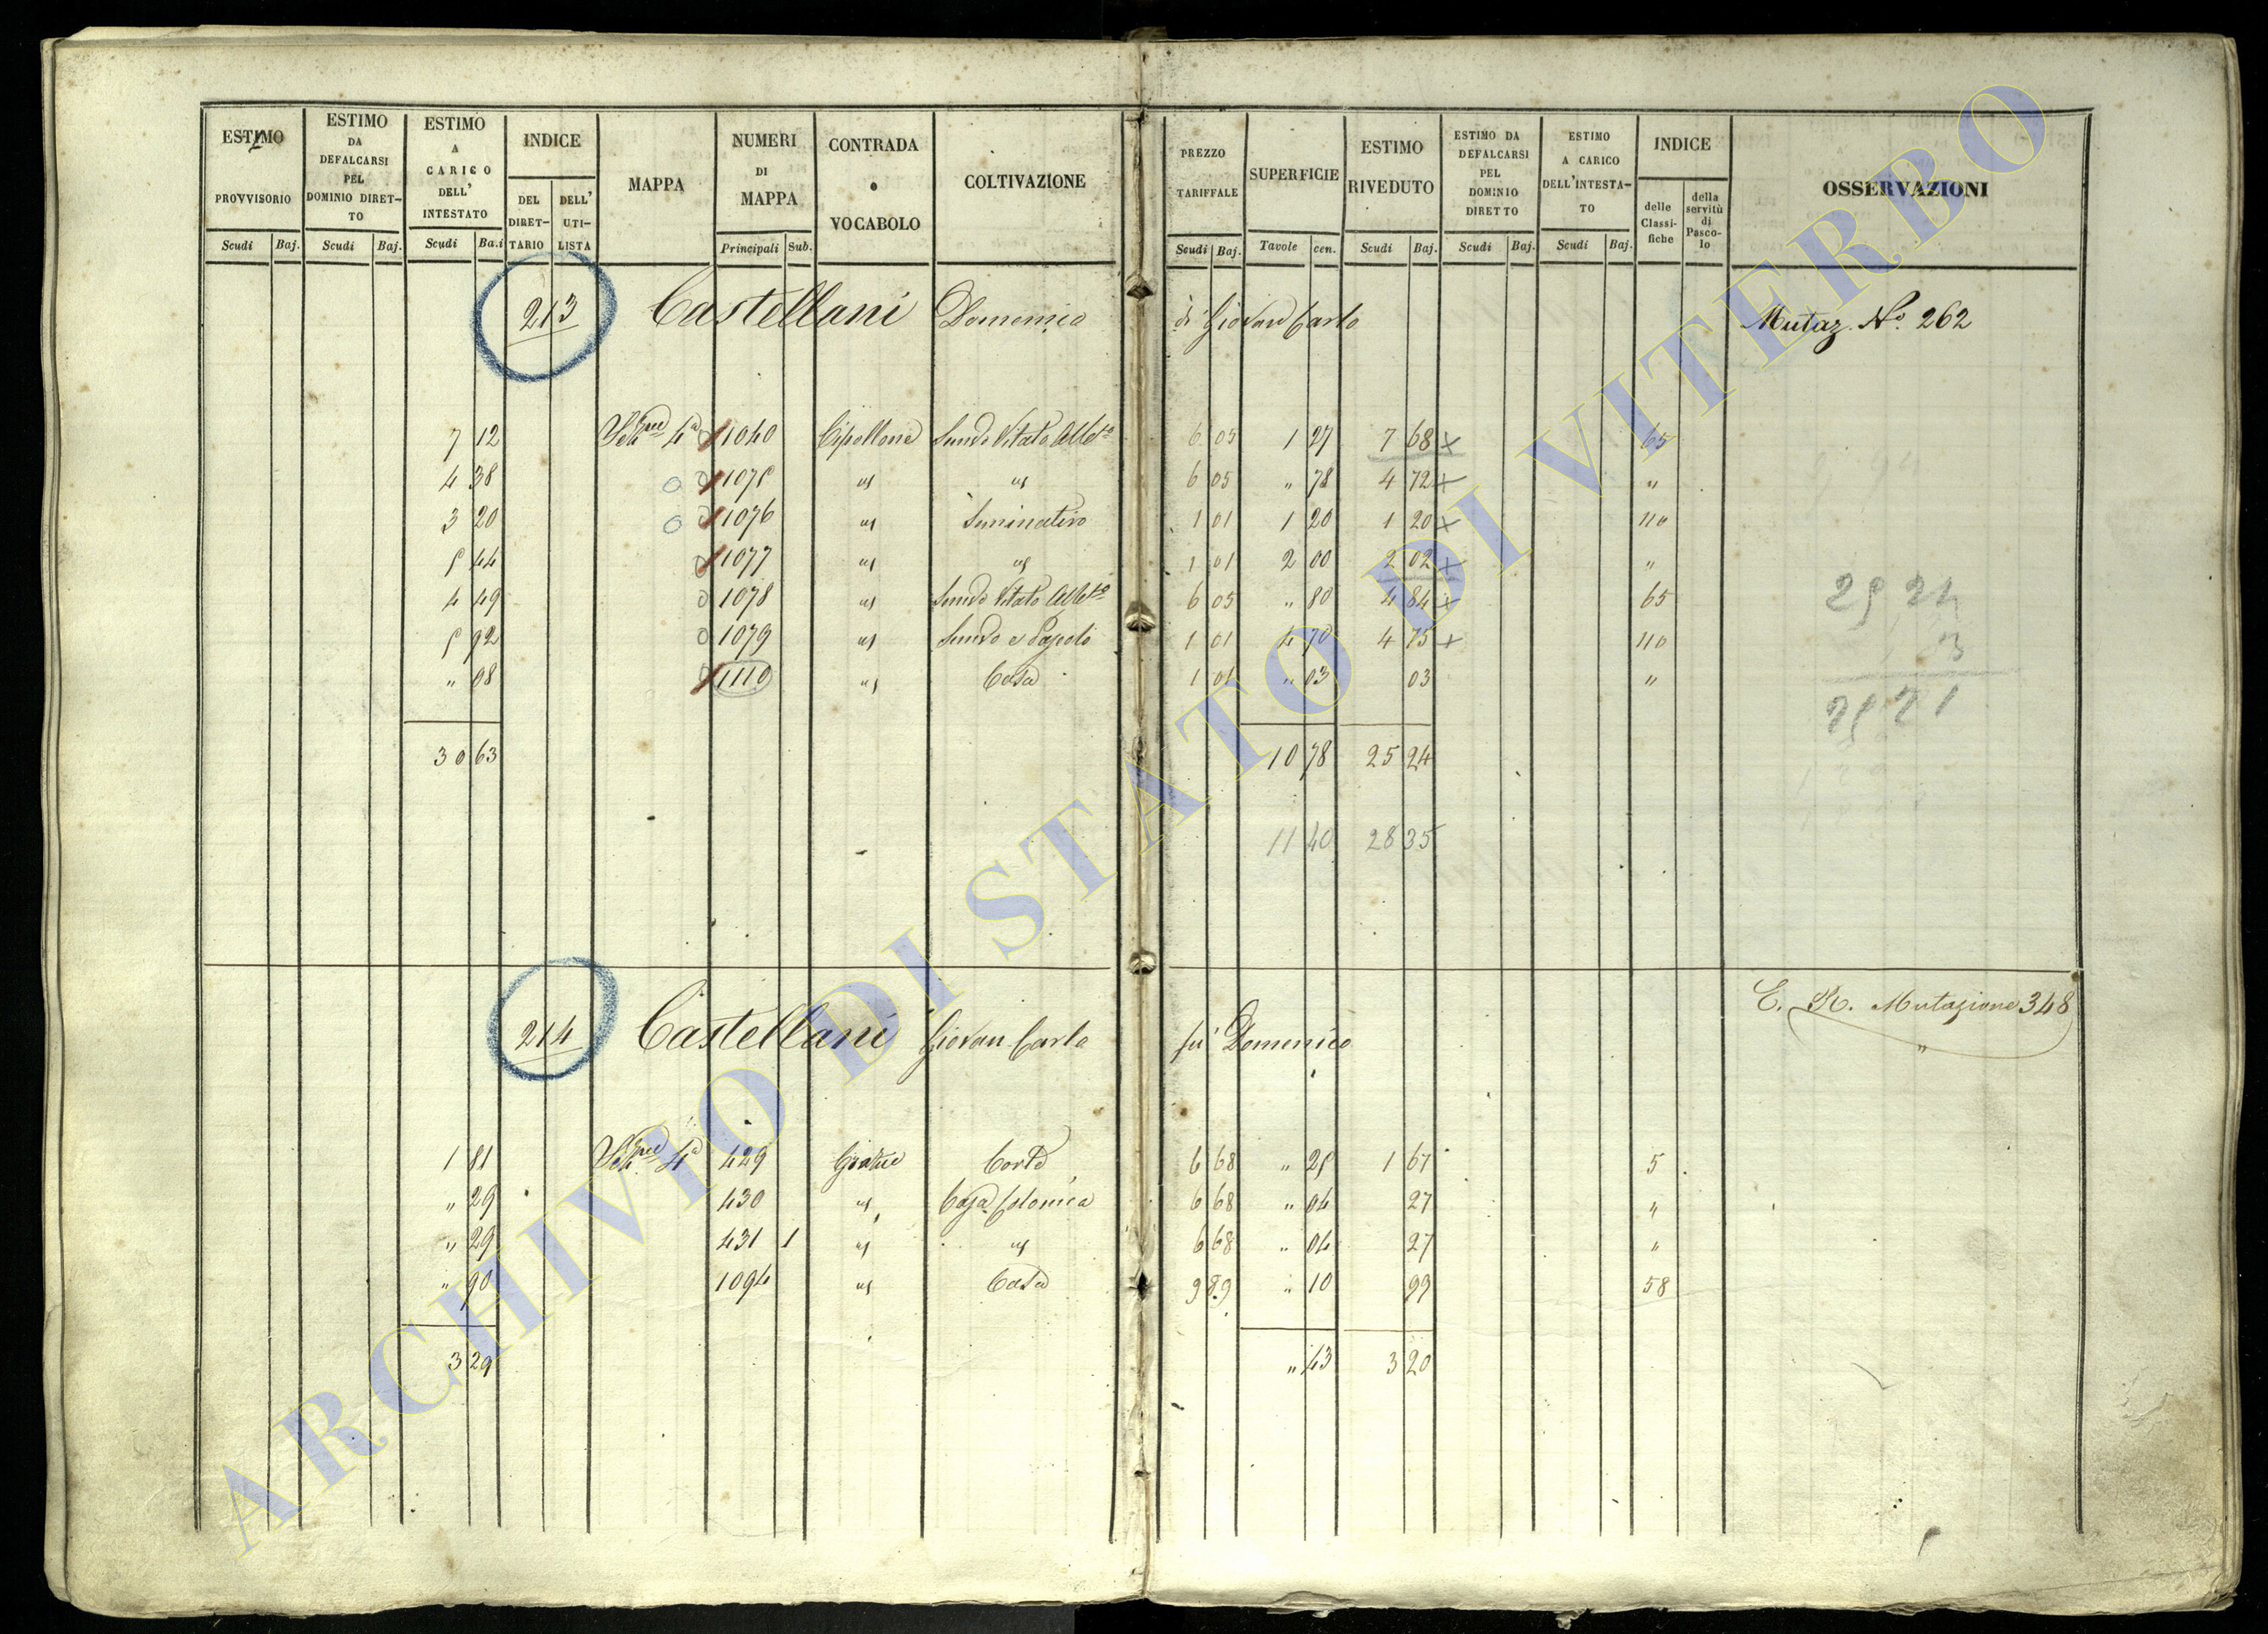 ESTIMO PROVVISORIO Scudi Baj.
ESTIMO DA DEFALCARSI PEL DOMINIO DIRET-TO Scudi Baj.
ESTIMO A CARICO DELL' INTESTATO Scudi Ba.i
INDICE DEL DIRET-TARIO DELL' UTI-LISTA
MAPPA
NUMERI DI MAPPA Principali Sub.
CONTRADA o VOCABOLO
COLTIVAZIONE
PREZZO TARIFFALE Scudi Baj.
SUPERFICIE Tavole cen.
ESTIMO RIVEDUTO Scudi Baj.
ESTIMO DA DEFALCARSI PEL DOMINIO DIRETTO Scudi Baj.
ESTIMO A CARICO DELL'INTESTA-TO Scudi Baj.
INDICE delle Classi-fiche della servitù di Pasco-lo
OSSERVAZIONI
213 Castellani Domenico di Giovan Carlo Mutaz. No. 262
7 12 4a 1040 Cipollone Vitato 6 05 1 27 7 68 x 65
4 38 1075 " " 6 05 " 78 4 72 x "
3 20 1076 " Seminativo 1 01 1 20 1 20 x 110
5 44 1077 " " 1 01 2 00 2 02 x "
4 49 1078 " Vitato 6 05 " 80 4 84 x 65
5 92 1079 " 1 01 4 70 4 75 x 110
" 08 1110 " Casa 1 01 " 03 03 "
30 63 10 78 25 24
11 40 28 35
25 24
03
25 21
214 Castellani Giovan Carlo fu Domenico E. R. Mutazione 348
1 81 4a 429 Corte 6 68 " 25 1 67 5
" 29 430 " Casa Colonica 6 68 " 04 27 "
" 29 431 1 " " 6 68 " 04 27 "
" 90 1094 " Casa 9 89 " 10 99 58
3 29 " 43 3 20
ARCHIVIO DI STATO DI VITERBO